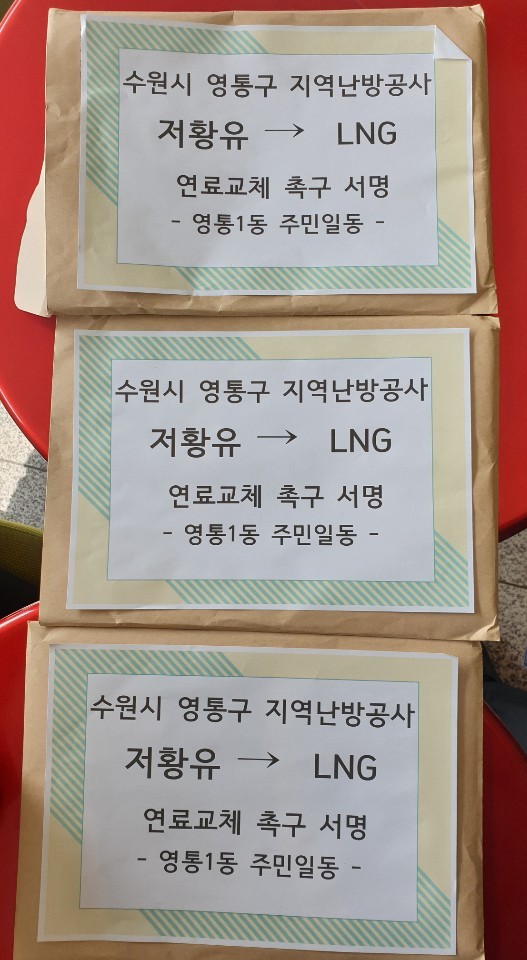 수원시 영통구 지역난방공사
저황유 → LNG
연료교체 촉구 서명
- 영통1동 주민일동 -
수원시 영통구 지역난방공사
저황유 → LNG
연료교체 촉구 서명
- 영통1동 주민일동 -
수원시 영통구 지역난방공사
저황유 → LNG
연료교체 촉구 서명
- 영통1동 주민일동 -